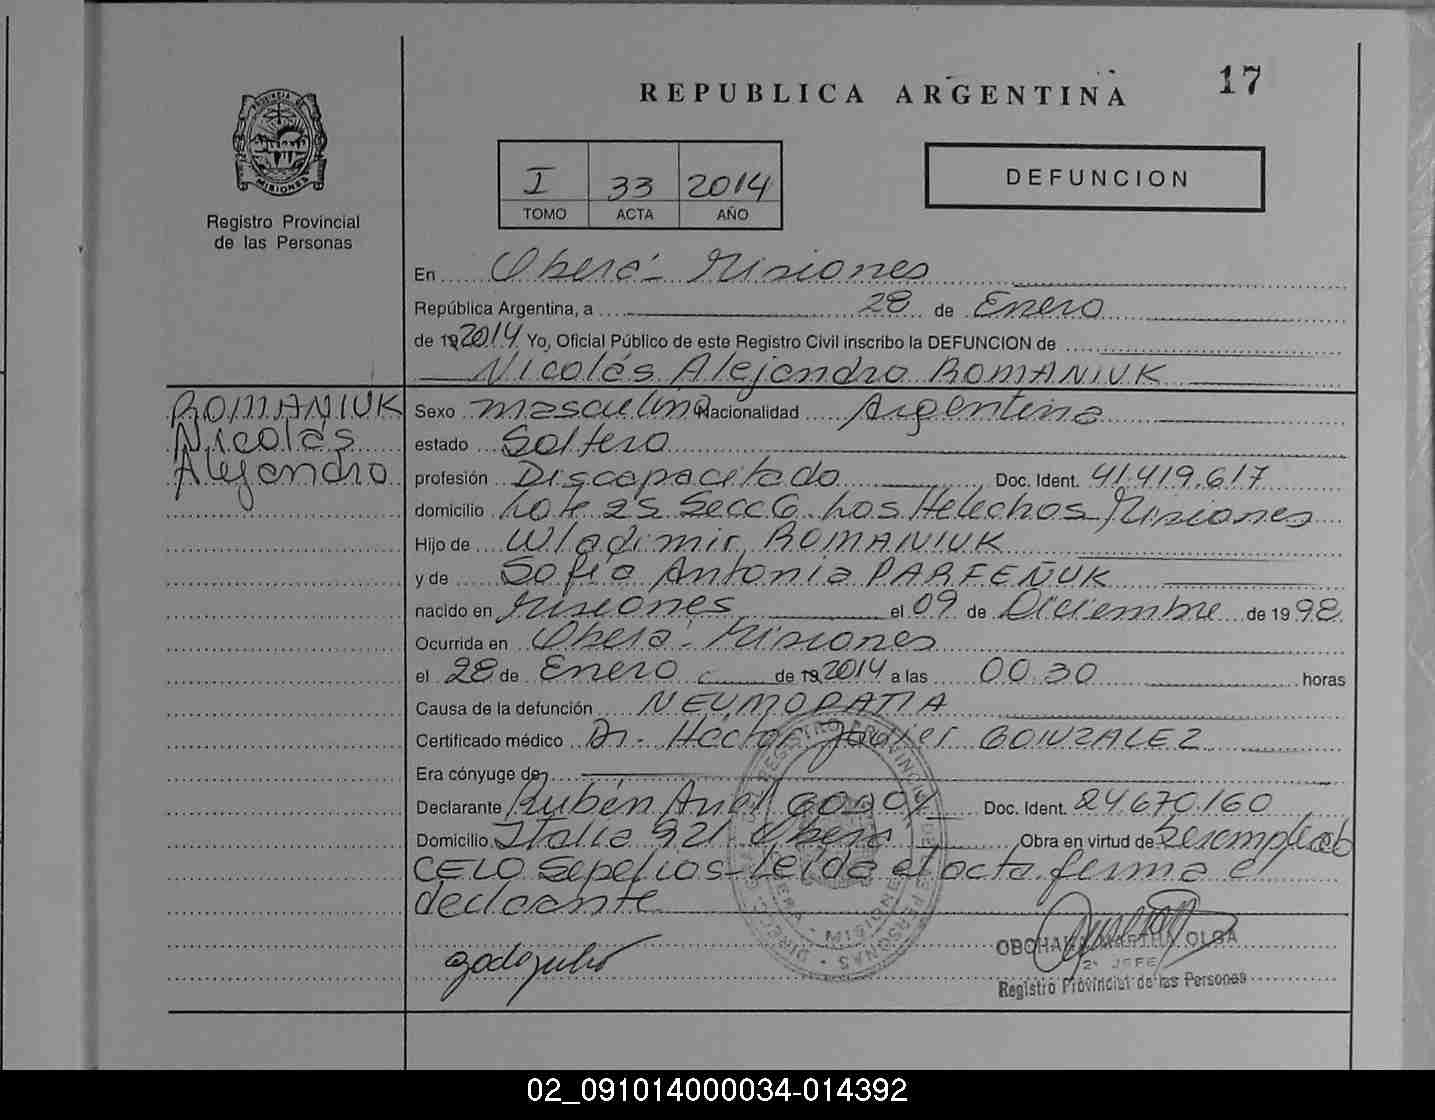 17
REPUBLICA ARGENTINA
PROVINCIA DE MISIONES
Registro Provincial
de las Personas
I 33 2014
TOMO ACTA AÑO
DEFUNCION
En Oberá - Misiones
República Argentina, a 28 de Enero
de 19 2014 Yo, Oficial Público de este Registro Civil inscribo la DEFUNCION de
Nicolás Alejandro ROMANIUK
ROMANIUK
Nicolás
Alejandro
Sexo masculino Nacionalidad Argentina
estado Soltero
profesión Discapacitado Doc. Ident. 41.419.617
domicilio Lote 25 Secc 6 Los Helechos Misiones
Hijo de Wladimir ROMANIUK
y de Sofía Antonia PARFEÑUK
nacido en Misiones el 09 de Diciembre de 19 98
Ocurrida en Oberá - Misiones
el 28 de Enero de 19 2014 a las 00.30 horas
Causa de la defunción NEUMOPATIA
Certificado médico Dr. Héctor Javier GONZALEZ
Era cónyuge de
Declarante Rubén Doc. Ident. 24.670.160
Domicilio Italia 921 Oberá Obra en virtud de
CELO Sepelios - Leída el acta firma el
declarante
MARTHA OLGA
2° JEFE
Registro Provincial de las Personas
02_091014000034-014392